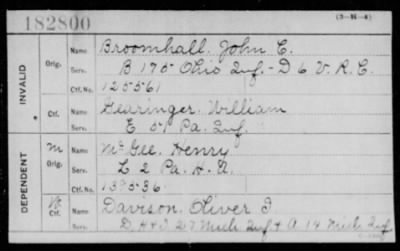 182800
(3—M—6)
INVALID
Orig.
Name Broomhall. John C.
Serv. B 175 Ohio Inf. - D 6 V. R. C.
Ctf. No. 125561
Ctf.
Name Gearinger. William
Serv. E 51 Pa. Inf.
DEPENDENT
M Orig.
Name McGee. Henry
Serv. L 2 Pa. H. A.
Ctf. No. 135536
W Ctf.
Name Davison. Oliver J
Serv. D, H & I 27 Mich Inf & A 14 Mich Inf